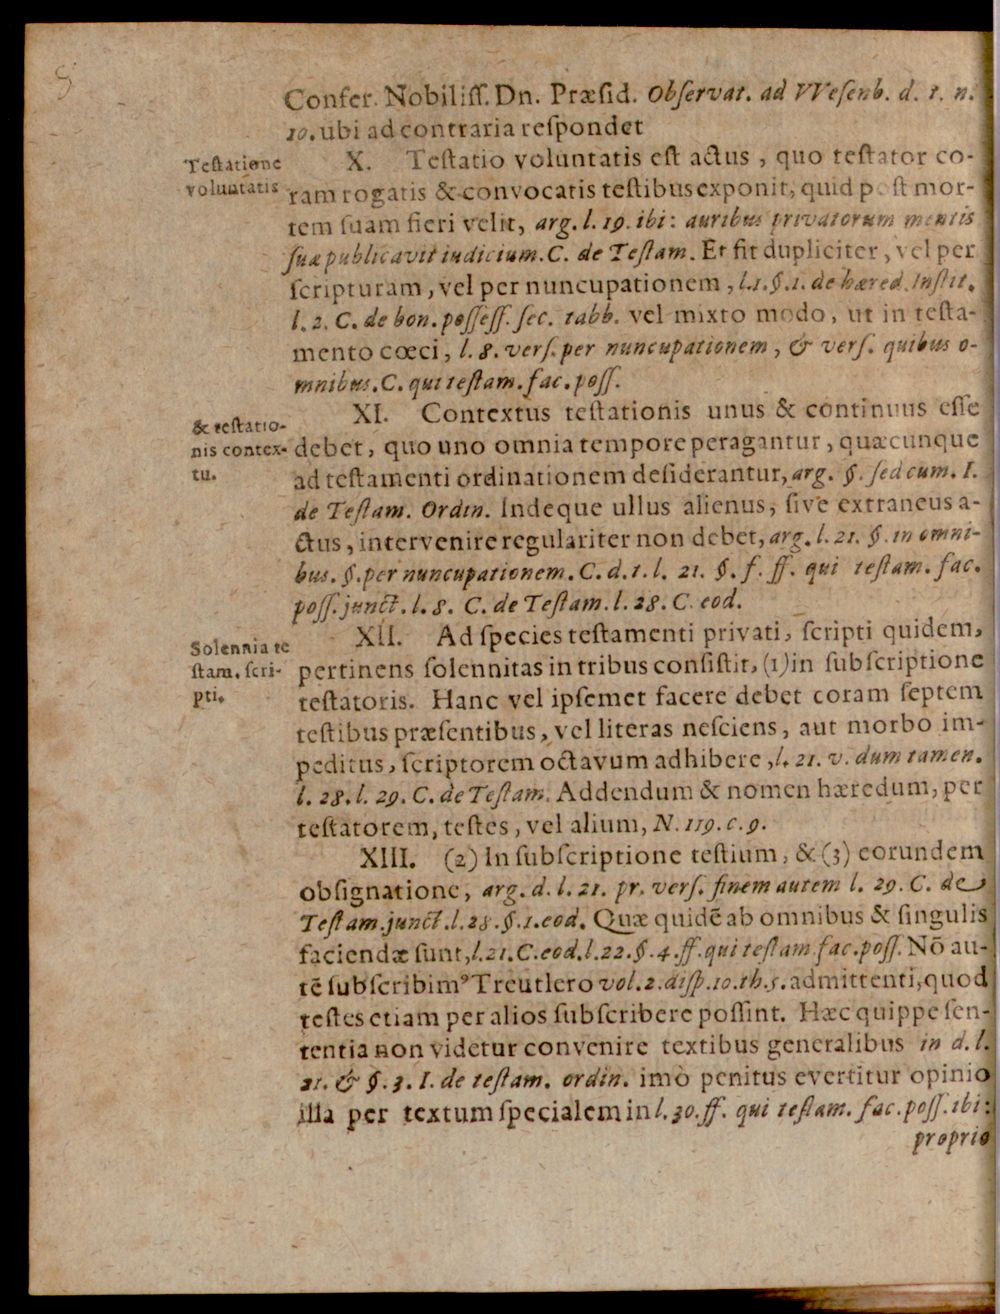 Confer. Nobiliſſ. Dn. Præſid. Obſervat. ad VVeſenb. d. t. n.
10. ubi ad contraria reſpondet
Teſtatione
voluntatis
X. Teſtatio voluntatis eſt actus, quo teſtator co-
ram rogatis & convocatis teſtibus exponit, quid poſt mor-
tem ſuam fieri velit, arg. l. 19. ibi: auribus privatorum mentis
ſuæ publicavit iudicium. C. de Teſtam. Et fit dupliciter, vel per
ſcripturam, vel per nuncupationem, l. 1. §. 1. de hæred. Inſtit.
l. 2. C. de bon. poſſeſſ. ſec. tabb. vel mixto modo, ut in teſta-
mento cœci, l. 8. verſ. per nuncupationem, & verſ. quibus o-
mnibus. C. qui teſtam. fac. poſſ.
& teſtatio-
nis contex-
tu.
XI. Contextus teſtationis unus & continuus eſſe
debet, quo uno omnia tempore peragantur, quæcunque
ad teſtamenti ordinationem deſiderantur, arg. §. ſed cum. I.
de Teſtam. Ordin. Indeque ullus alienus, ſive extraneus a-
ctus, intervenire regulariter non debet, arg. l. 21. §. in omni-
bus. §. per nuncupationem. C. d. t. l. 21. §. f. ff. qui teſtam. fac.
poſſ. junct. l. 8. C. de Teſtam. l. 28. C. eod.
Solennia te
ſtam. ſcri-
pti.
XII. Ad ſpecies teſtamenti privati, ſcripti quidem,
pertinens ſolennitas in tribus conſiſtit, (1) in ſubſcriptione
teſtatoris. Hanc vel ipſemet facere debet coram ſeptem
teſtibus præſentibus, vel literas neſciens, aut morbo im-
peditus, ſcriptorem octavum adhibere, l. 21. v. dum tamen.
l. 28. l. 29. C. de Teſtam. Addendum & nomen hæredum, per
teſtatorem, teſtes, vel alium, N. 119. c. 9.
XIII. (2) In ſubſcriptione teſtium, & (3) eorundem
obſignatione, arg. d. l. 21. pr. verſ. finem autem l. 29. C. de
Teſtam. junct. l. 28. §. 1. eod. Quæ quidē ab omnibus & ſingulis
faciendæ ſunt, l. 21. C. eod. l. 22. §. 4. ff. qui teſtam fac. poſſ. Nō au-
tē ſubſcribimꝰ Treutlero vol. 2. diſp. 10. th. 5. admittenti, quod
teſtes etiam per alios ſubſcribere poſſint. Hæc quippe ſen-
tentia non videtur convenire textibus generalibus in d. l.
21. & §. 3. I. de teſtam. ordin. imò penitus evertitur opinio
illa per textum ſpecialem in l. 30. ff. qui teſtam. fac. poſſ. ibi:
proprio